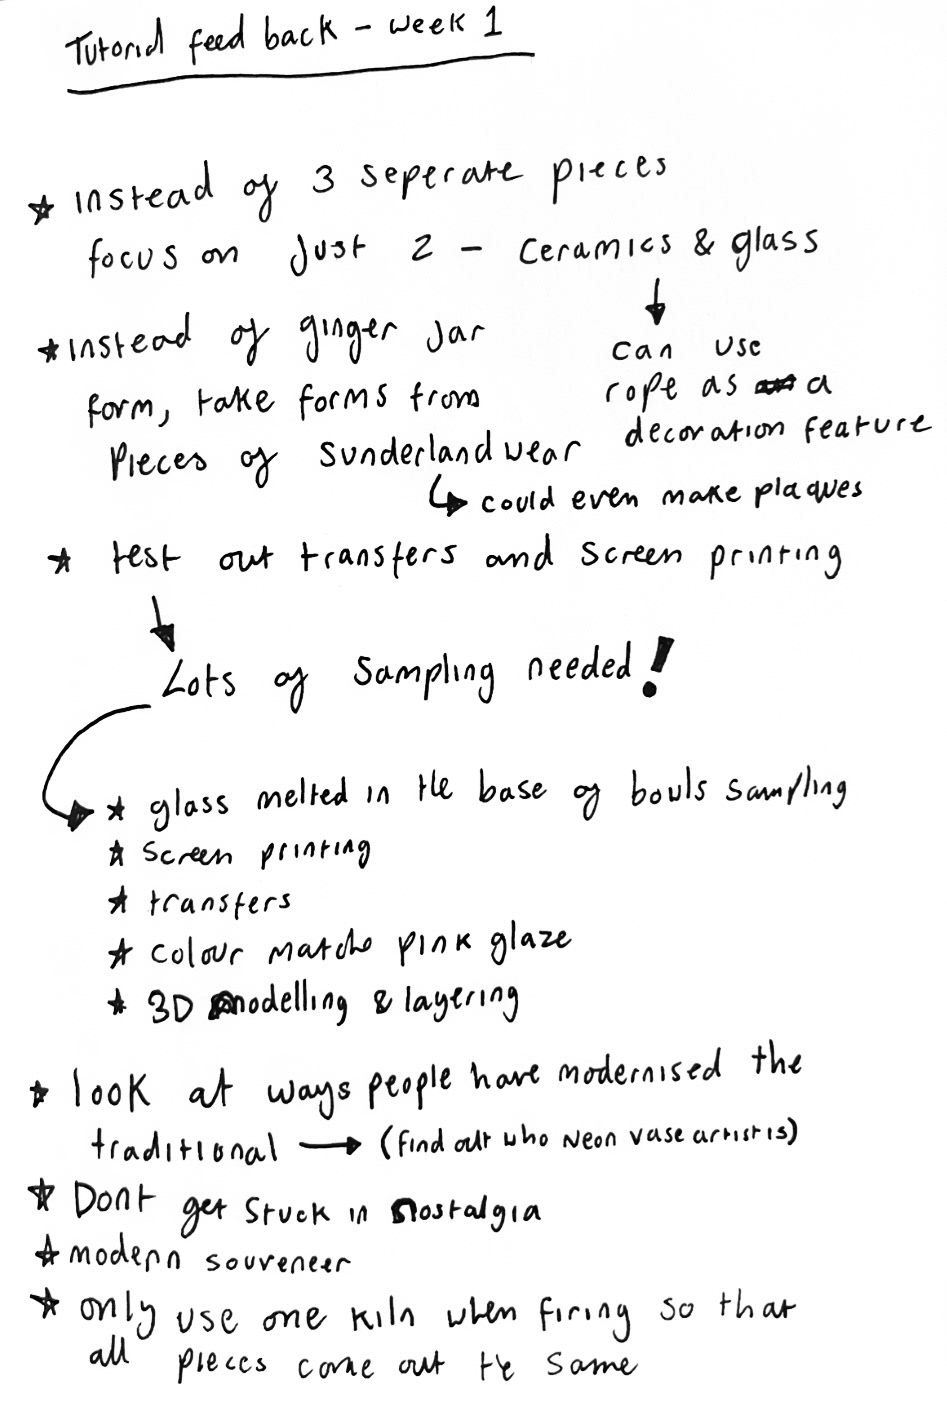 Tutorial feed back - week 1
★ instead of 3 seperate pieces
focus on just 2 - ceramics & glass
★ instead of ginger jar
form, take forms from
pieces of Sunderland wear
↓
can use
rope as a
decoration feature
↳ could even make plaques
★ test out transfers and screen printing
↓
Lots of sampling needed!
→ ★ glass melted in the base of bowls sampling
★ screen printing
★ transfers
★ colour matche pink glaze
★ 3D modelling & layering
★ look at ways people have modernised the
traditional → (find out who neon vase artist is)
★ Dont get stuck in nostalgia
★ modern souveneer
★ only use one kiln when firing so that
all pieces come out the same